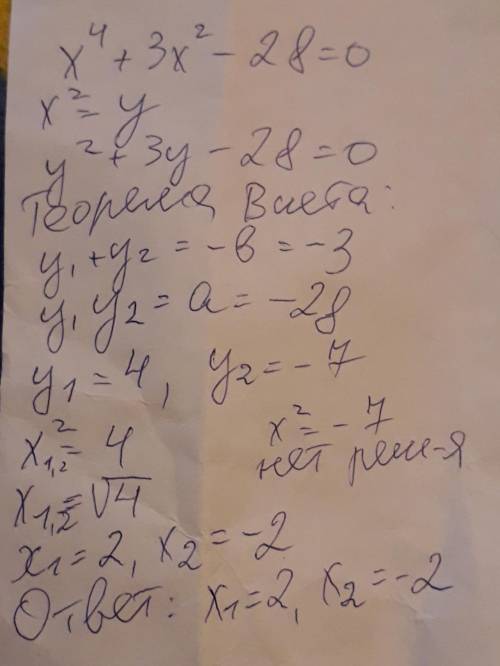 x⁴ + 3x² - 28 = 0
x² = y
y² + 3y - 28 = 0
Теорема Виета:
y₁ + y₂ = -в = -3
y₁ y₂ = a = -28
y₁ = 4, y₂ = -7
x₁,₂² = 4 x² = -7
нет реш-я
x₁,₂ = √4
x₁ = 2, x₂ = -2
Ответ: x₁ = 2, x₂ = -2